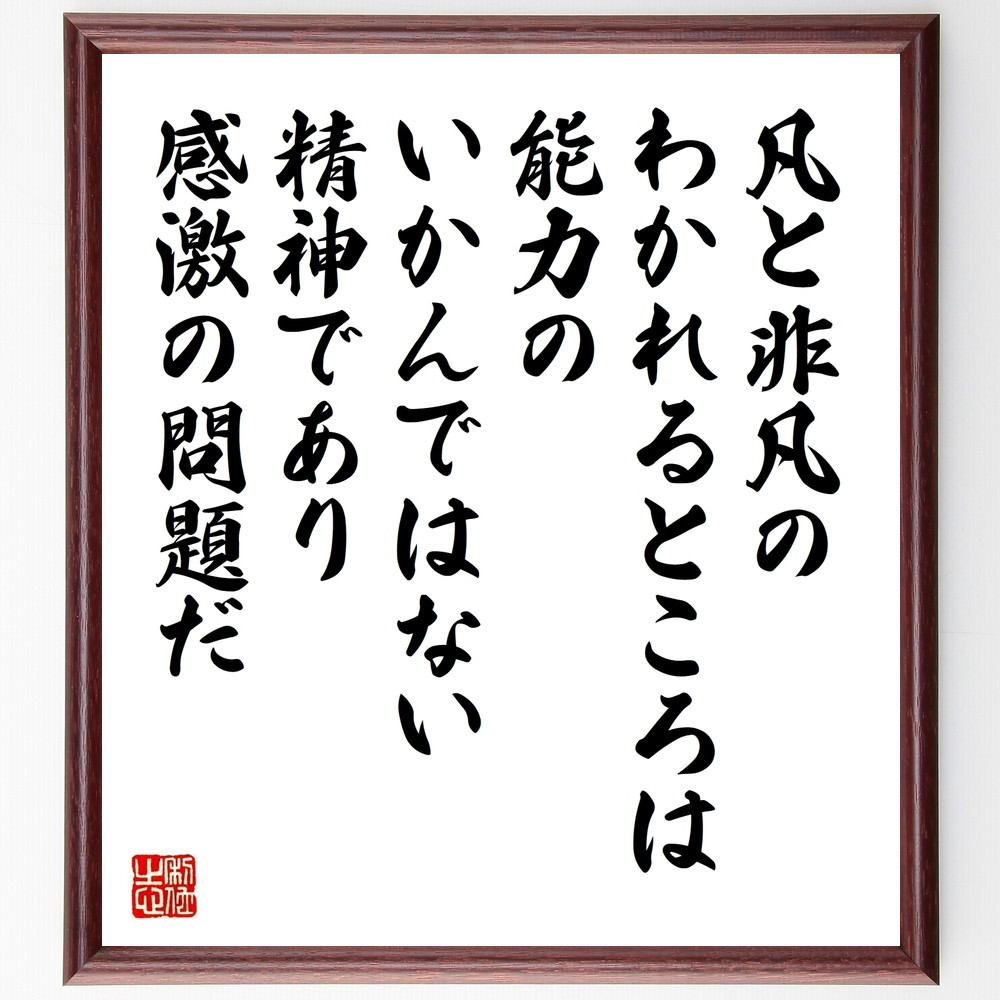 凡と非凡の
わかれるところは
能力の
いかんではない
精神であり
感激の問題だ